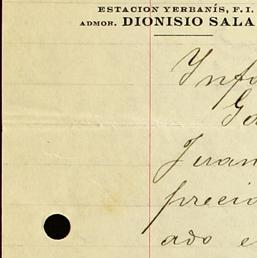 ESTACION YERBANÍS, F. I.
ADMOR. DIONISIO SALA
Info
Go
Juan
precio
ado e